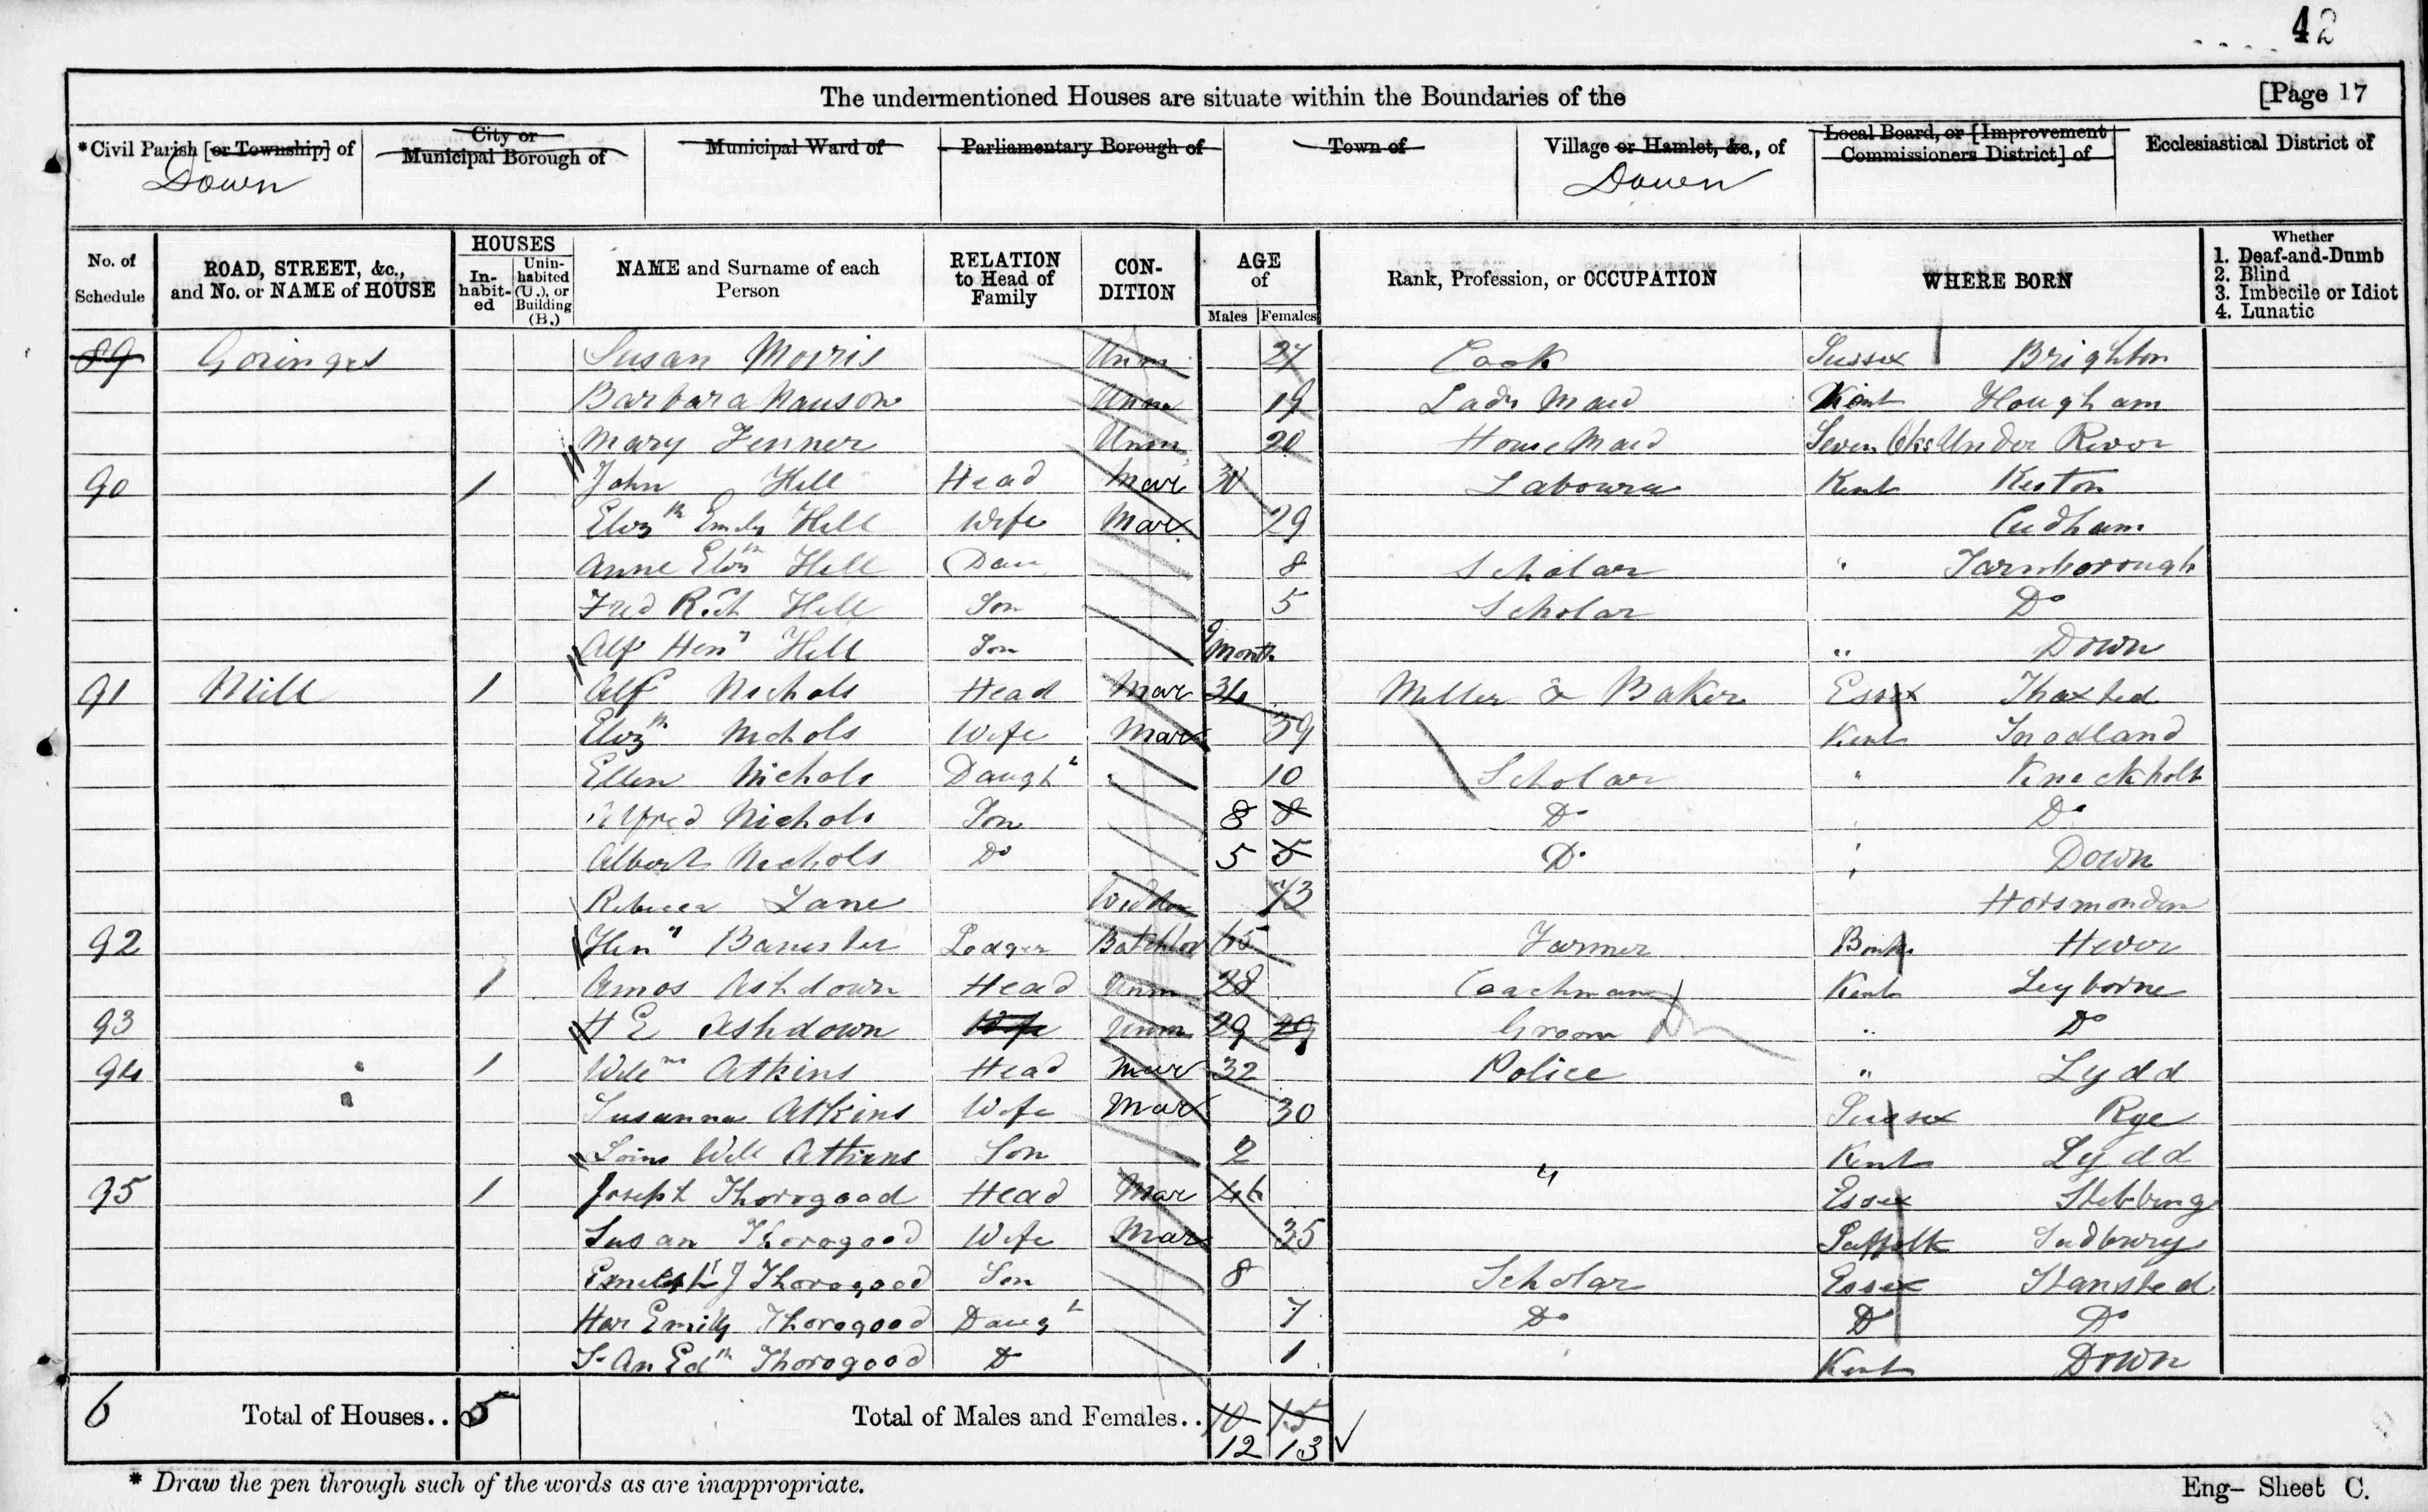 42
The undermentioned Houses are situate within the Boundaries of the [Page 17
*Civil Parish [or Township] of Down
City or Municipal Borough of
Municipal Ward of
Parliamentary Borough of
Town of
Village or Hamlet, &c., of Down
Local Board, or [Improvement Commissioners District] of
Ecclesiastical District of
No. of Schedule
ROAD, STREET, &c., and No. or NAME of HOUSE
HOUSES In-habit-ed Unin-habited (U.), or Building (B.)
NAME and Surname of each Person
RELATION to Head of Family
CON-DITION
AGE of Males Females
Rank, Profession, or OCCUPATION
WHERE BORN
Whether 1. Deaf-and-Dumb 2. Blind 3. Imbecile or Idiot 4. Lunatic
89 Goringes Susan Morris Unm 27 Cook Sussex Brighton
Barbara Unm 19 Lady Maid Kent Hougham
Mary Fenner Unm 20 House Maid Seven Oks Under River
90 1 John Hill Head Mar 30 Labourer Kent Keston
Elizth Emily Hill Wife Mar 29 Cudham
Anne Elizth Hill Dau 8 Scholar " Farnborough
Fred Rich Hill Son 5 Scholar Do
Alf Heny Hill Son 9 Month " Down
91 Mill 1 Alf Nichols Head Mar 34 Miller & Baker Essex Thaxted
Elizth Nichols Wife Mar 39 Kent Snodland
Ellen Nichols Daught " 10 Scholar " Knockholt
Alfred Nichols Son 8 8 Do " Do
Albert Nichols Do 5 5 Do " Down
Rebecca Lane Widow 73 Horsmonden
92 Heny Banister Lodger Batchlor 65 Farmer Hever
1 Amos Ashdown Head Unm 28 Coachman Kent Leyborne
93 H E Ashdown Wife Unm 29 29 Groom " Do
94 1 Willm Atkins Head Mar 32 Police " Lydd
Susanna Atkins Wife Mar 30 Sussex Rye
Will Atkins Son 2 Kent Lydd
95 1 Joseph Thorogood Head Mar 46 " Essex Stebbing
Susan Thorogood Wife Mar 35 Suffolk Sudbury
J Thorogood Son 8 Scholar Essex Stansted
Har Emily Thorogood Daugt 7 Do Do Do
S. An Edth Thorogood D 1 Kent Down
6 Total of Houses.. 5 Total of Males and Females.. 10 15
12 13
* Draw the pen through such of the words as are inappropriate. Eng- Sheet C.